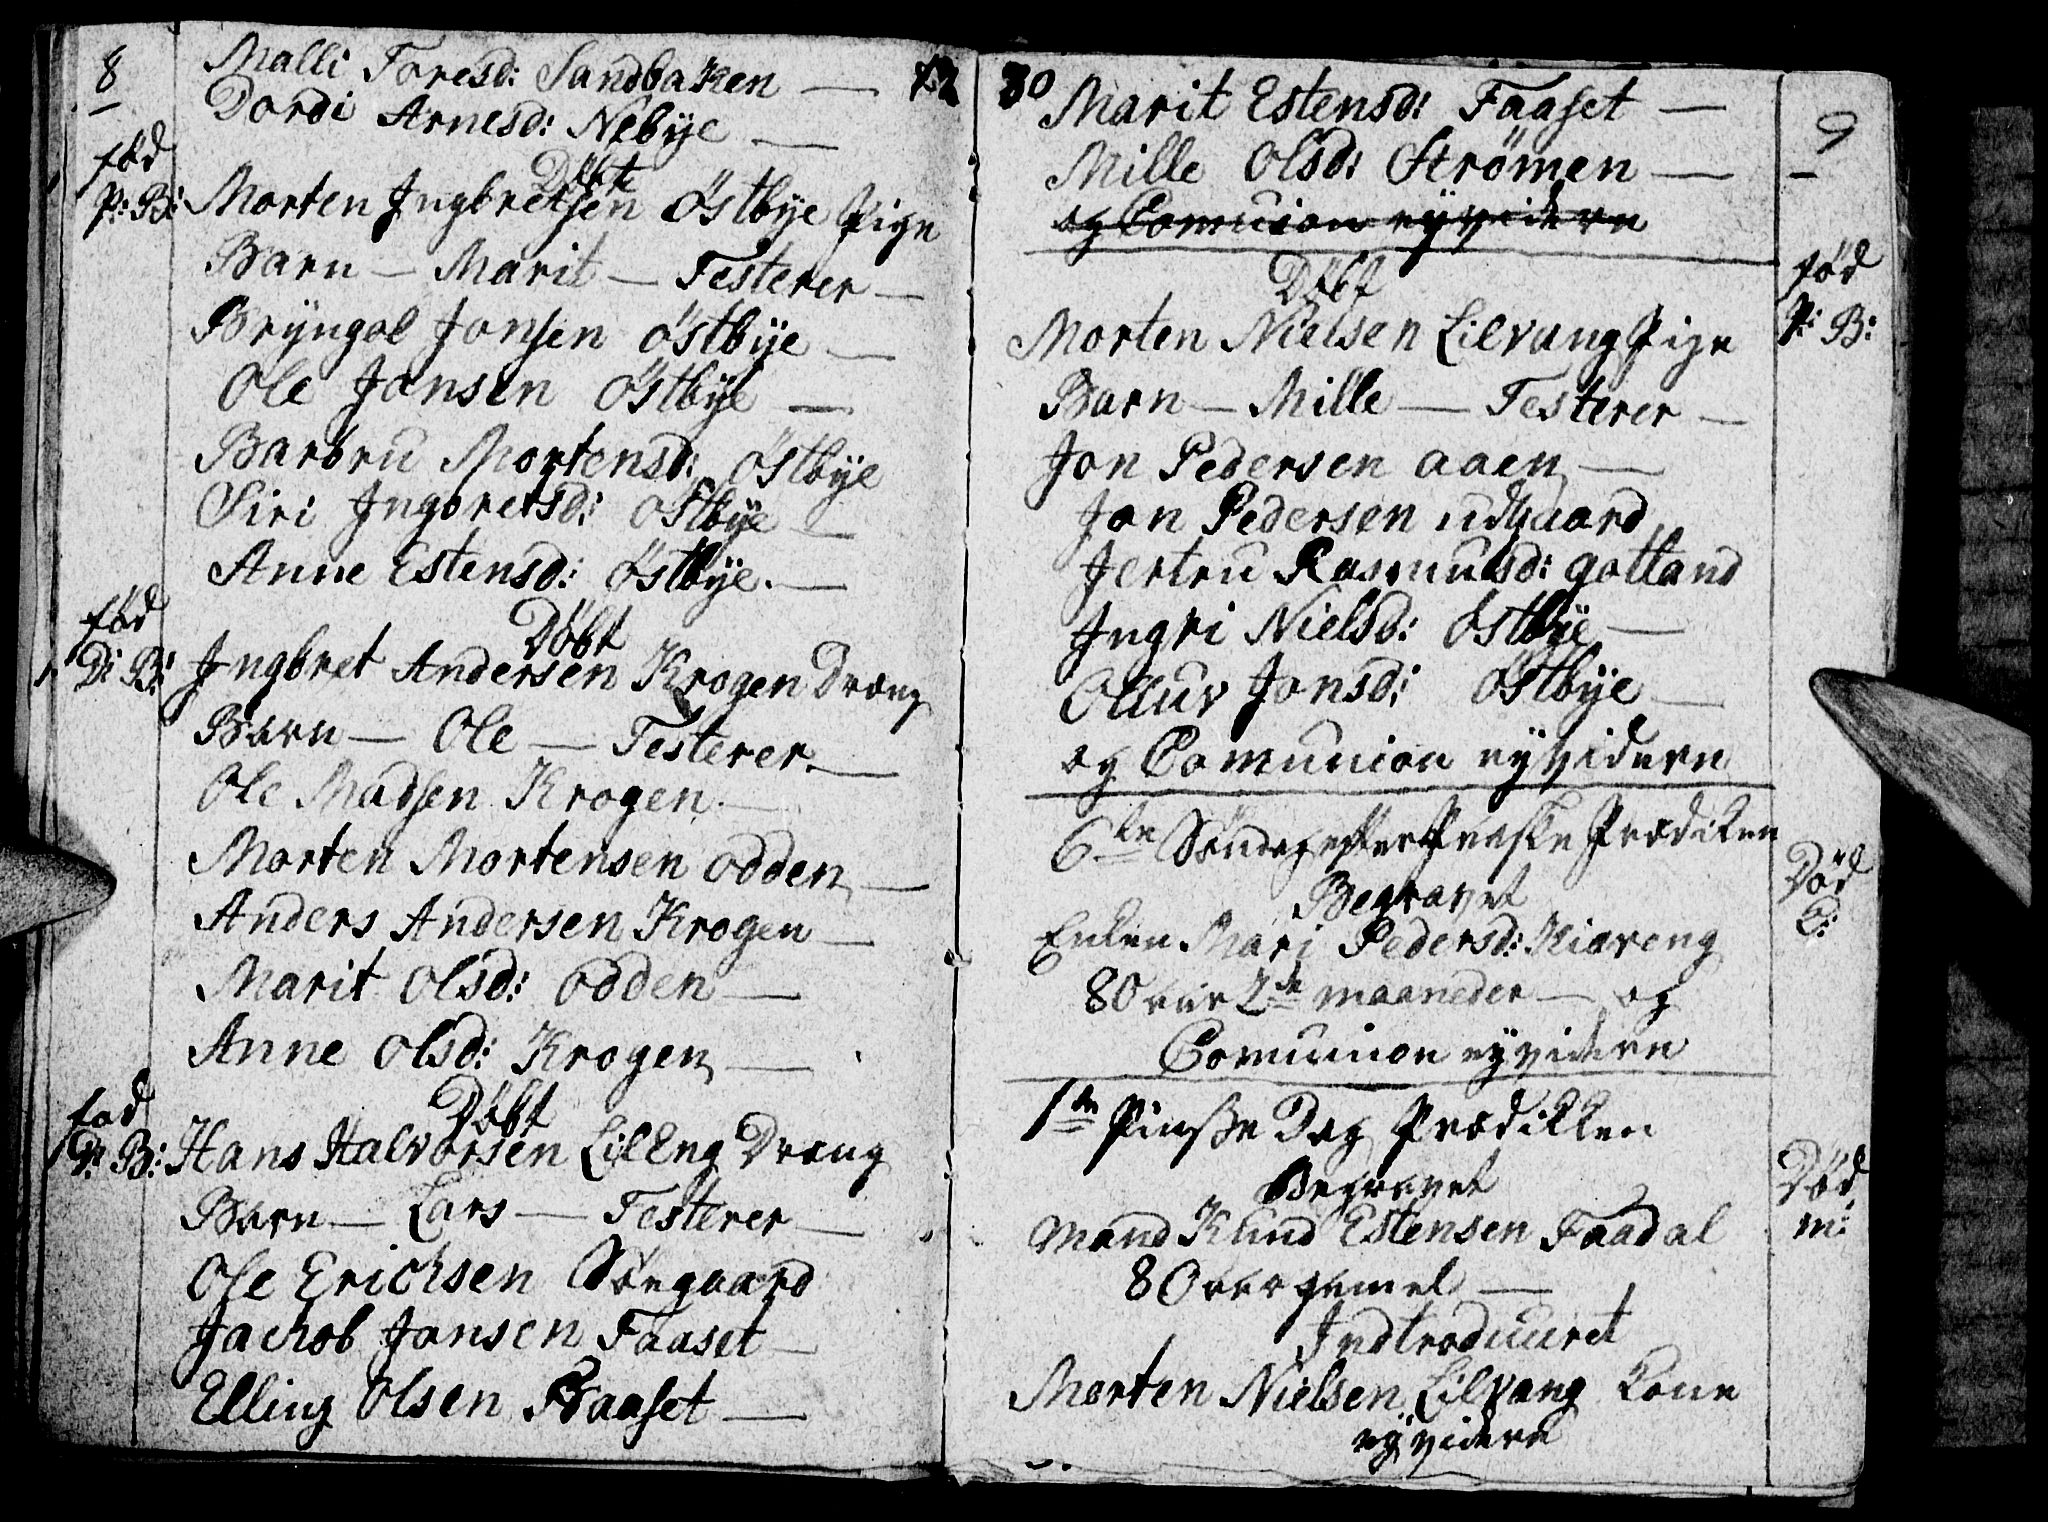 8
Malli Toresd: Sandbaken —
Dordi Arnesd: Nebÿe —
Död
født
P: B: Morten Jngbretsen Östbÿe Pige
Barn — Marit — Testerer —
Brÿngel Jonsen östbÿe —
Ole Jonsen östbÿe —
Barbru Mortensd: östbÿe
Siri Jngbretsd: östbÿe —
Anne Estensd: östbÿe. —
fød
Döbt
D: B: Jngbret Andersen Krogen Dreng
Barn — Ole — Testerer. —
Ole Madsen Krogen. —
Morten Mortensen odden —
Anders Andersen Krogen —
Marit olsd: odden —
Anne olsd: Krogen —
fød
Döbt
D: B: Hans Halvorsen LilEng Dreng
Barn — Lars — Testerer —
Ole Erichsen Söegaard
Jachob Jonsen Faaset —
Elling Olsen Faaset —
30
Marit Estensd: Faaset —
9
Mille olsd: Strömen —
og Comunion eÿ videre
Döbt
fød
Morten Nielsen Lilvang Pige
P: B:
Barn — Mille — Testerer —
Jon Pedersen aaen —
Jon Pedersen udgaard
Jertru Rasmusd: gotland
Jngri Nielsd: östbÿe —
Olluv Jonsd: östbÿe —
og Comunion eÿ videre
6te Söndag efter Paaske Prædiken
Begravet
Död
E:
Enken Mari Pedersd: Kiæreng
80 aar 2de maaneder — og
Comunion eÿ videre
1te Pinsse Dag Prædikken
Begravet
Död
m:
mand Knud Estensen Faadal
80 aar gamel —
Jndtroduuret
Morten Nielsen Lilvang Kone
eÿ videre